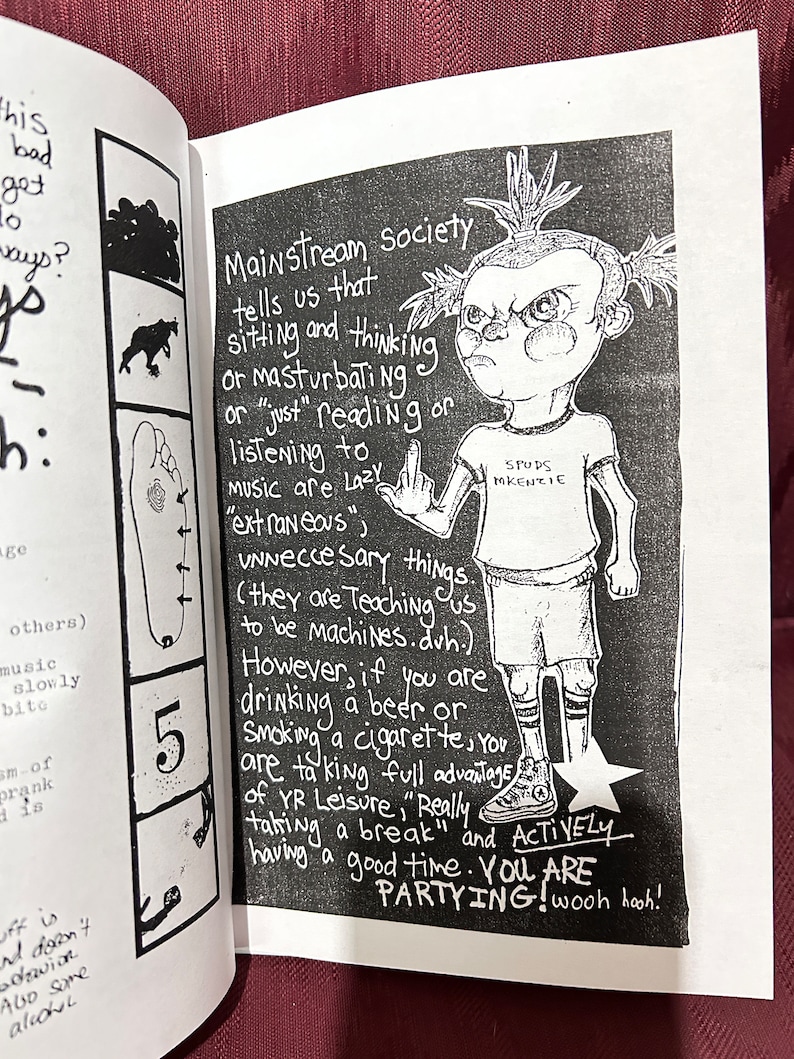 this
bad
get
do
ways?
h:
age
others)
music
slowly
bite
sm of
prank
d is
uff is
nd doesn't
behavior
Also some
alcohol
5
Mainstream society
tells us that
sitting and thinking
or masturbating
or "just" reading or
listening to
music are Lazy
"extraneous",
unneccesary things.
(they are Teaching us
to be machines. duh.)
However, if you are
drinking a beer or
smoking a cigarette, you
are taking full advantage
of YR Leisure, "Really
taking a break" and ACTIVELY
having a good time. YOU ARE
PARTYING! wooh hooh!
SPUDS
MKENZIE